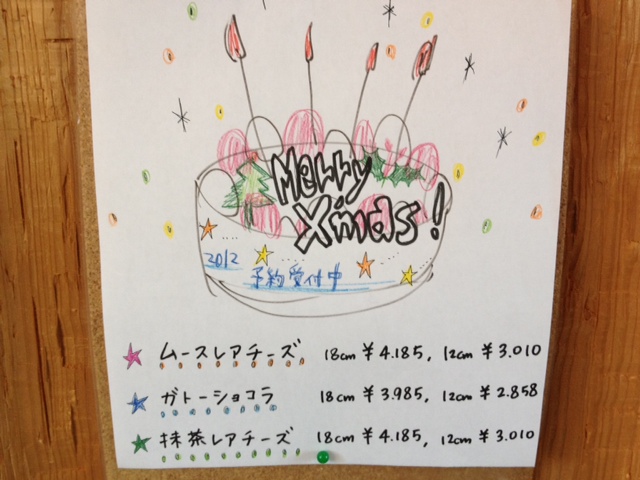 Merry
Xmas!
2012
予約受付中
ムースレアチーズ 18cm ¥4.185, 12cm ¥3.010
ガトーショコラ 18cm ¥3.985, 12cm ¥2.858
抹茶レアチーズ 18cm ¥4.185, 12cm ¥3.010